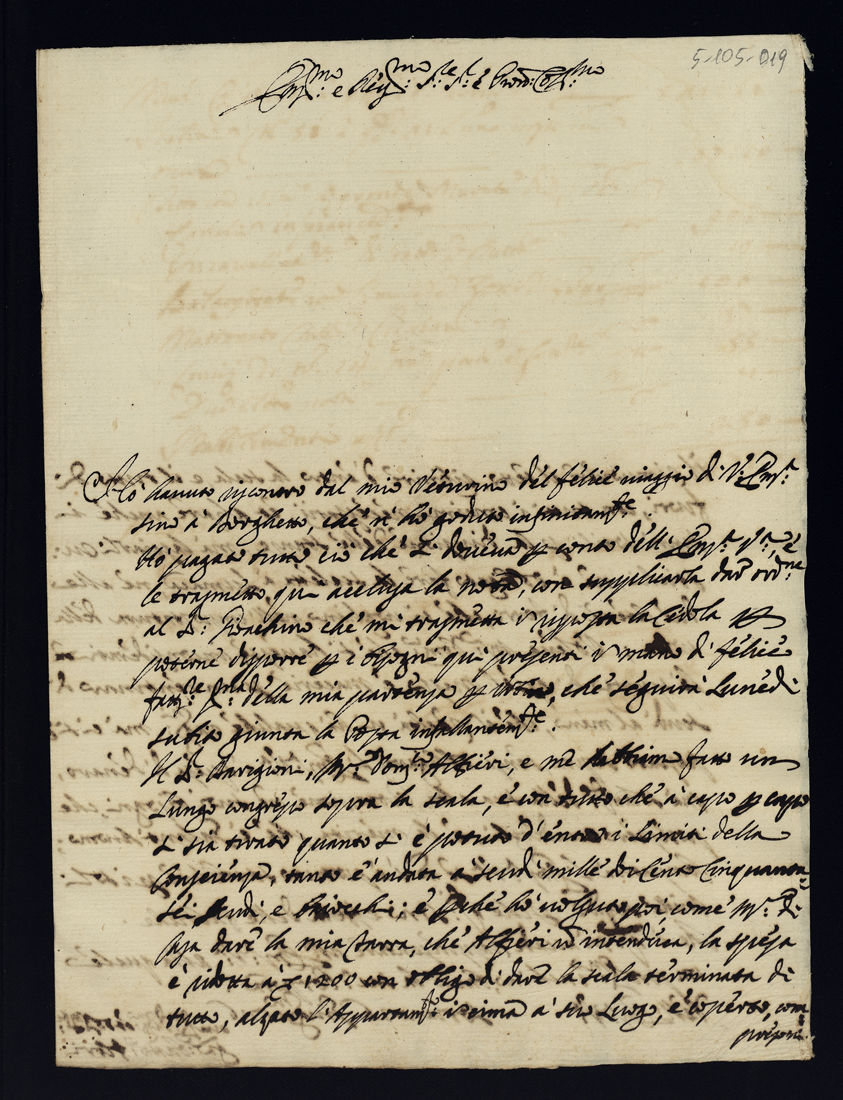 5-105-019
Em.mo e Rev.mo Sig.re Sig.r e Pron: Col.mo
Hò havuto riscontro dal mio Vetturino del felice viaggio di V: Em.a
sino à Borghetto, che n'hò goduto infinitam.te.
Hò pagato tutto ciò che si doveva p conto dell' Em.a V.a, e
le trasmetto qui acclusa la nota, con supplicarla dar ord.ne
al S.r Gioachino che mi trasmetta in risposta la Cedola p
poterne disporre p i bisogni qui presenti in mano di felice
fatt.re p.ma della mia partenza p, che seguirà Lunedi
subito giunta la Posta infallantem.te.
Il S.r Barigioni, M.r Dom.co Alfieri, e me habbiam fatto un
Lungo congresso sopra la scala, e con tutto che à capo p capo
si sia tirato quanto si è potuto d'entro i Limiti della
Conscienza, tanto è andata à scudi mille dicento Cinquanta-
sei scudi, e baiocchi; e p che hò voluto poi, come M.ro di
Casa dare la mia tarra, che Alfieri n'intenduta, la spesa
è ridotta à 1200 con obligo di dare la scala terminata di
tutto, alzato l'Appartam.to in cima à suo Luogo, e coperto, com
presoni